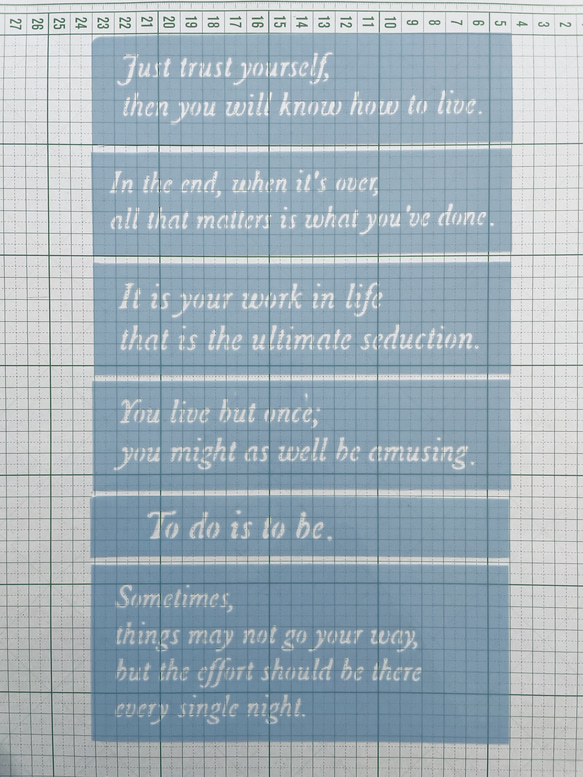 27 26 25 24 23 22 21 20 19 18 17 16 15 14 13 12 11 10 9 8 7 6 5 4 3 2
Just trust yourself,
then you will know how to live.
In the end, when it's over,
all that matters is what you've done.
It is your work in life
that is the ultimate seduction.
You live but once;
you might as well be amusing.
To do is to be.
Sometimes,
things may not go your way,
but the effort should be there
every single night.